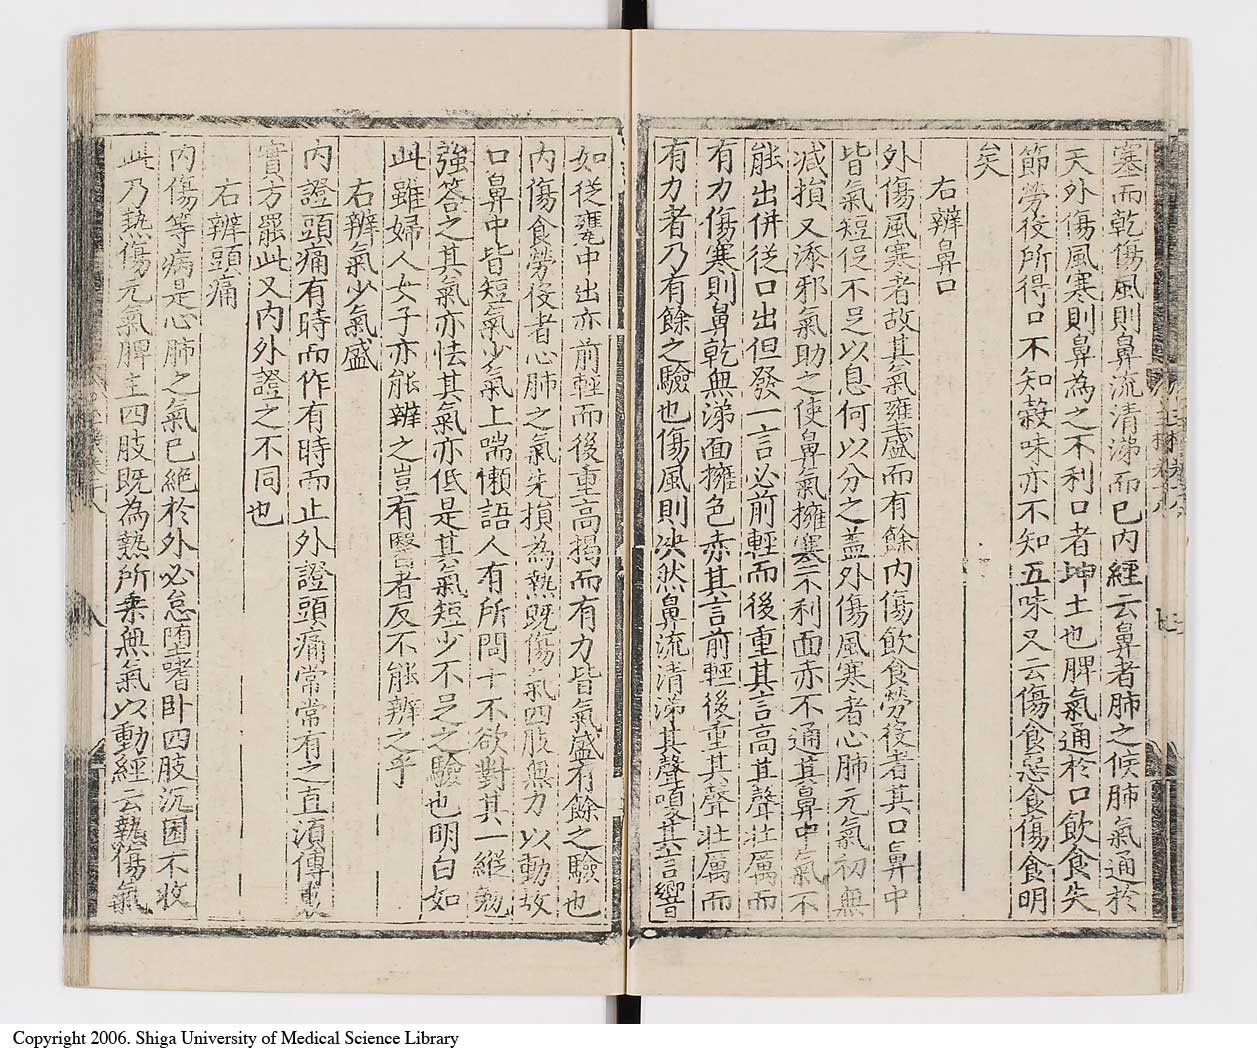 塞而乾傷風則鼻流清涕而已內經云鼻者肺之候肺氣通於
天外傷風寒則鼻為之不利口者坤土也脾氣通於口飲食失
節勞役所得口不知穀味亦不知五味又云傷食惡食傷食明
矣
右辨鼻口
外傷風寒者故其氣壅盛而有餘內傷飲食勞役者其口鼻中
皆氣短促不足以息何以分之盖外傷風寒者心肺元氣初無
减損又添邪氣助之使鼻氣擁塞不利面赤不通其鼻中氣不
能出併從口出但發一言必前輕而後重其言高其聲壯厲而
有力傷寒則鼻乾無涕面擁色赤其言前輕後重其聲壯厲而
有力者乃有餘之驗也傷風則决然鼻流清涕其聲嗄其言響
如從甕中出亦前輕而後重高揭而有力皆氣盛有餘之驗也
內傷食勞役者心肺之氣先損為熱既傷氣四肢無力以動故
口鼻中皆短氣少氣上喘懶語人有所問十不欲對其一縱勉
強答之其氣亦怯其氣亦低是其氣短少不足之驗也明白如
此雖婦人女子亦能辨之豈有醫者反不能辨之乎
右辨氣少氣盛
內證頭痛有時而作有時而止外證頭痛常常有之直湏傳裏
實方罷此又內外證之不同也
右辨頭痛
內傷等病是心肺之氣已絕於外必怠墮嗜卧四肢沉困不收
此乃熱傷元氣脾主四肢既為熱所乗無氣以動經云熱傷氣
Copyright 2006. Shiga University of Medical Science Library